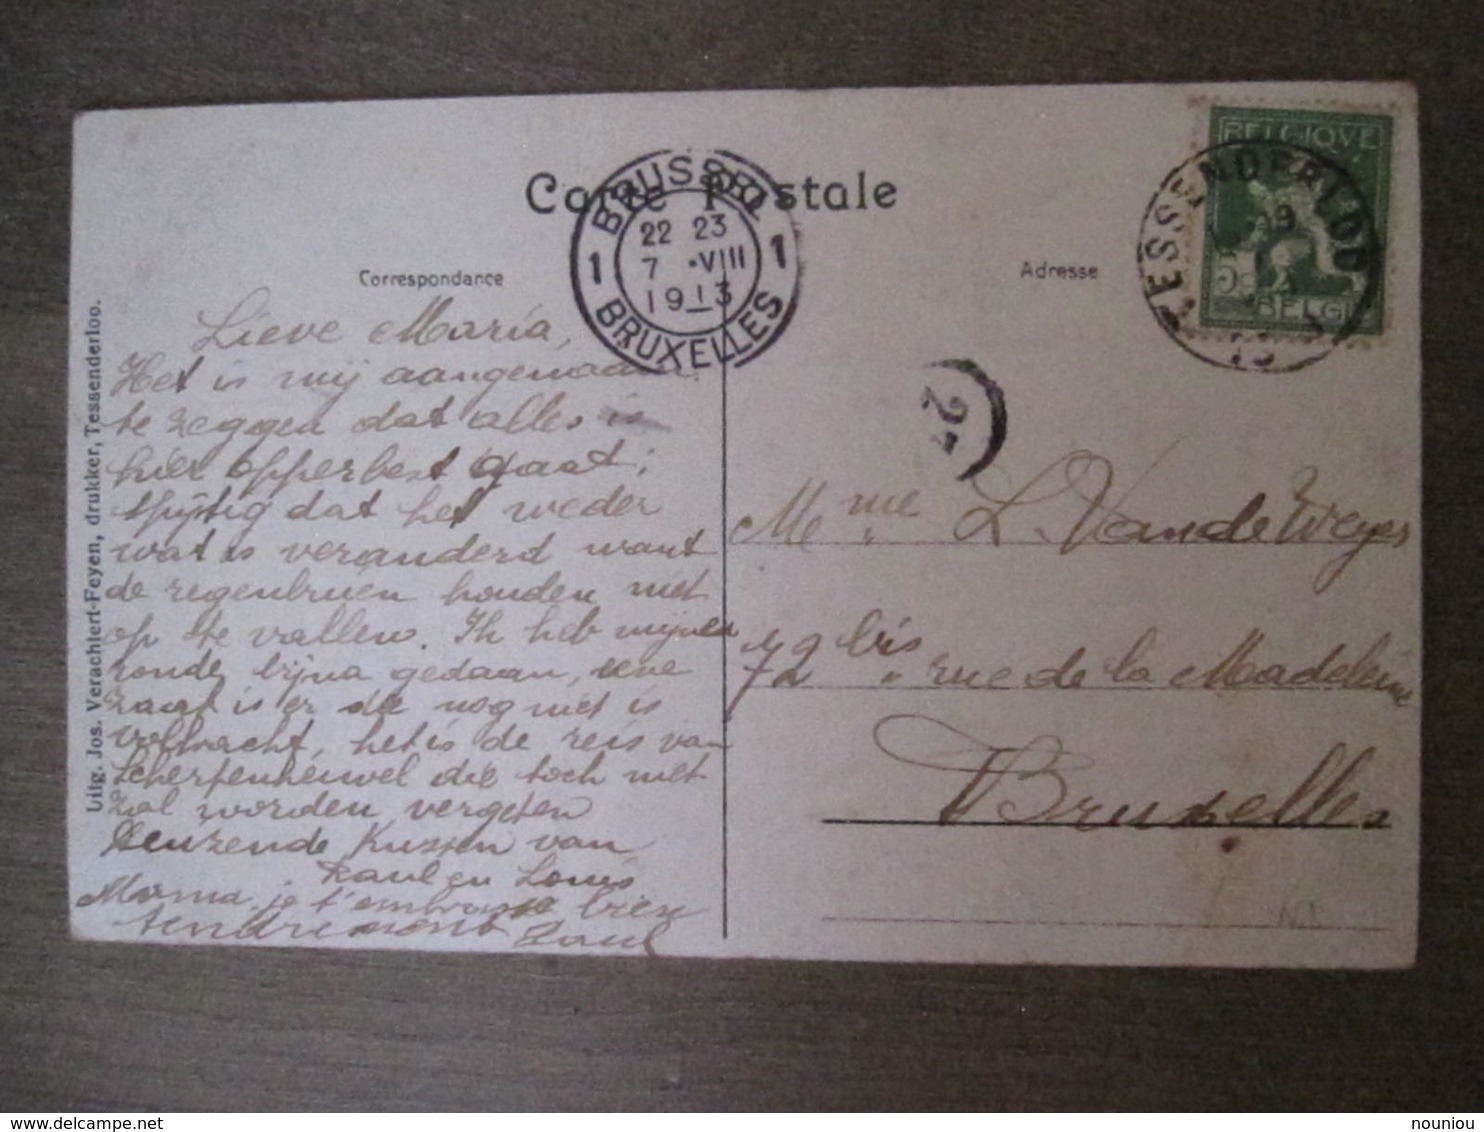 Carte Postale
BRUSSEL
1 22 23 1
7 •VIII
1913
BRUXELLES
BELGIQUE
5c
BELGI
TESSENDERLOO
19
13
Correspondance
Adresse
Lieve Maria,
Het is mij aangenaam
te zeggen dat alles is
hier opperbest gaat;
spijtig dat het weder
wat is veranderd want
de regenbuien houden niet
op te vallen. Ik heb mijnen
ronde bijna gedaan, eene
zaak is er die nog niet is
volbracht, het is de reis van
Scherpenheuvel die toch niet
zal worden vergeten
Kussen van
Raul en Louis
Mama je t'embrasse bien
tendrement Raul
Mme L. VandeWeyer
72 bis rue de la Madeleine
Bruxelles
Uitg. Jos. Verachtert-Feyen, drukker, Tessenderloo.
nouniou